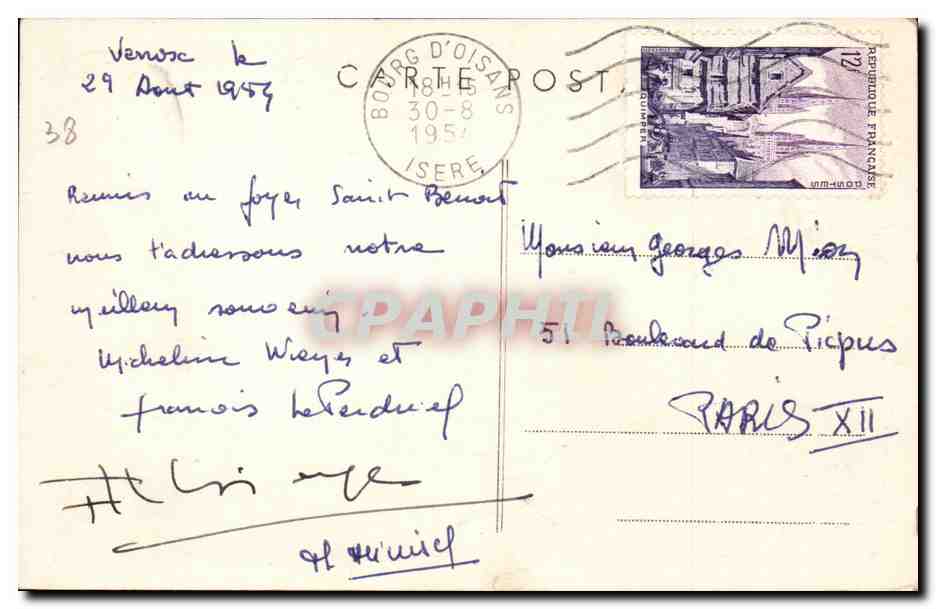 Venosc le
29 Aout 1954
38
CARTE POST
BOURG D'OISANS
18-15
30-8
195
ISERE
12f
REPUBLIQUE FRANÇAISE
POSTES
QUIMPER
Reunis au foyer Saint Benoit
nous t'adressons notre
meilleur souvenir
Micheline Wieyes et
francois LePerdriel
Monsieur Georges
51 Boulevard de Picpus
PARIS XII
CPAPHIL